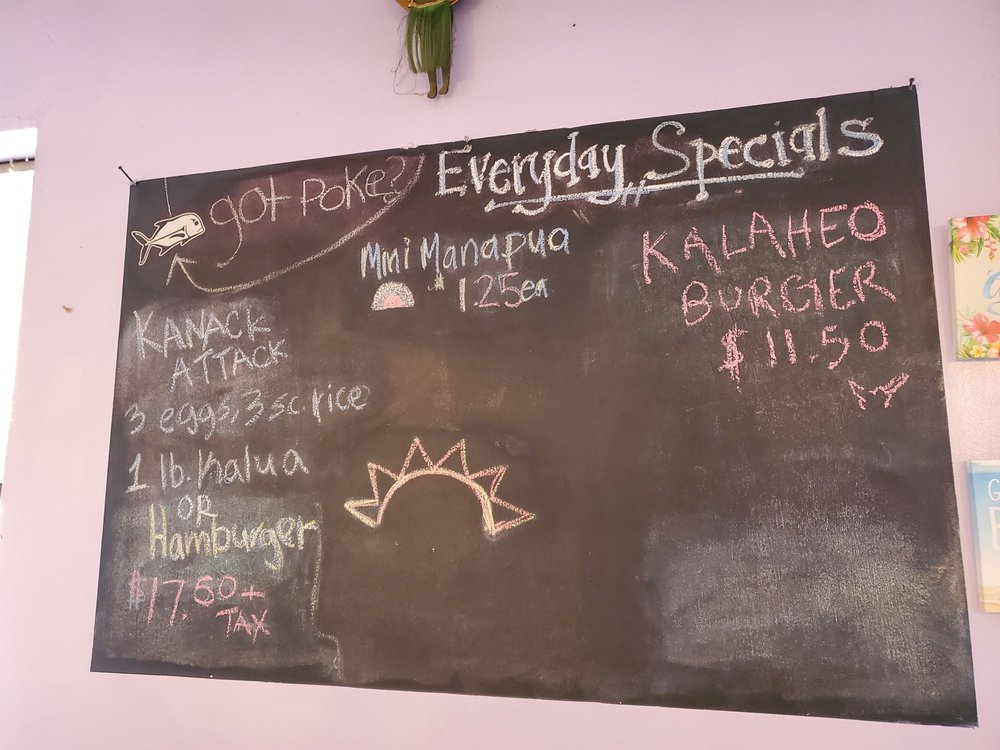 Everyday Specials
got Poke?
Mini Manapua
1.25ea
KALAHEO
BURGER
$11.50
KANACK
ATTACK
3 eggs, 3 sc. rice
1 lb. Kalua
OR
Hamburger
$17.50+
TAX